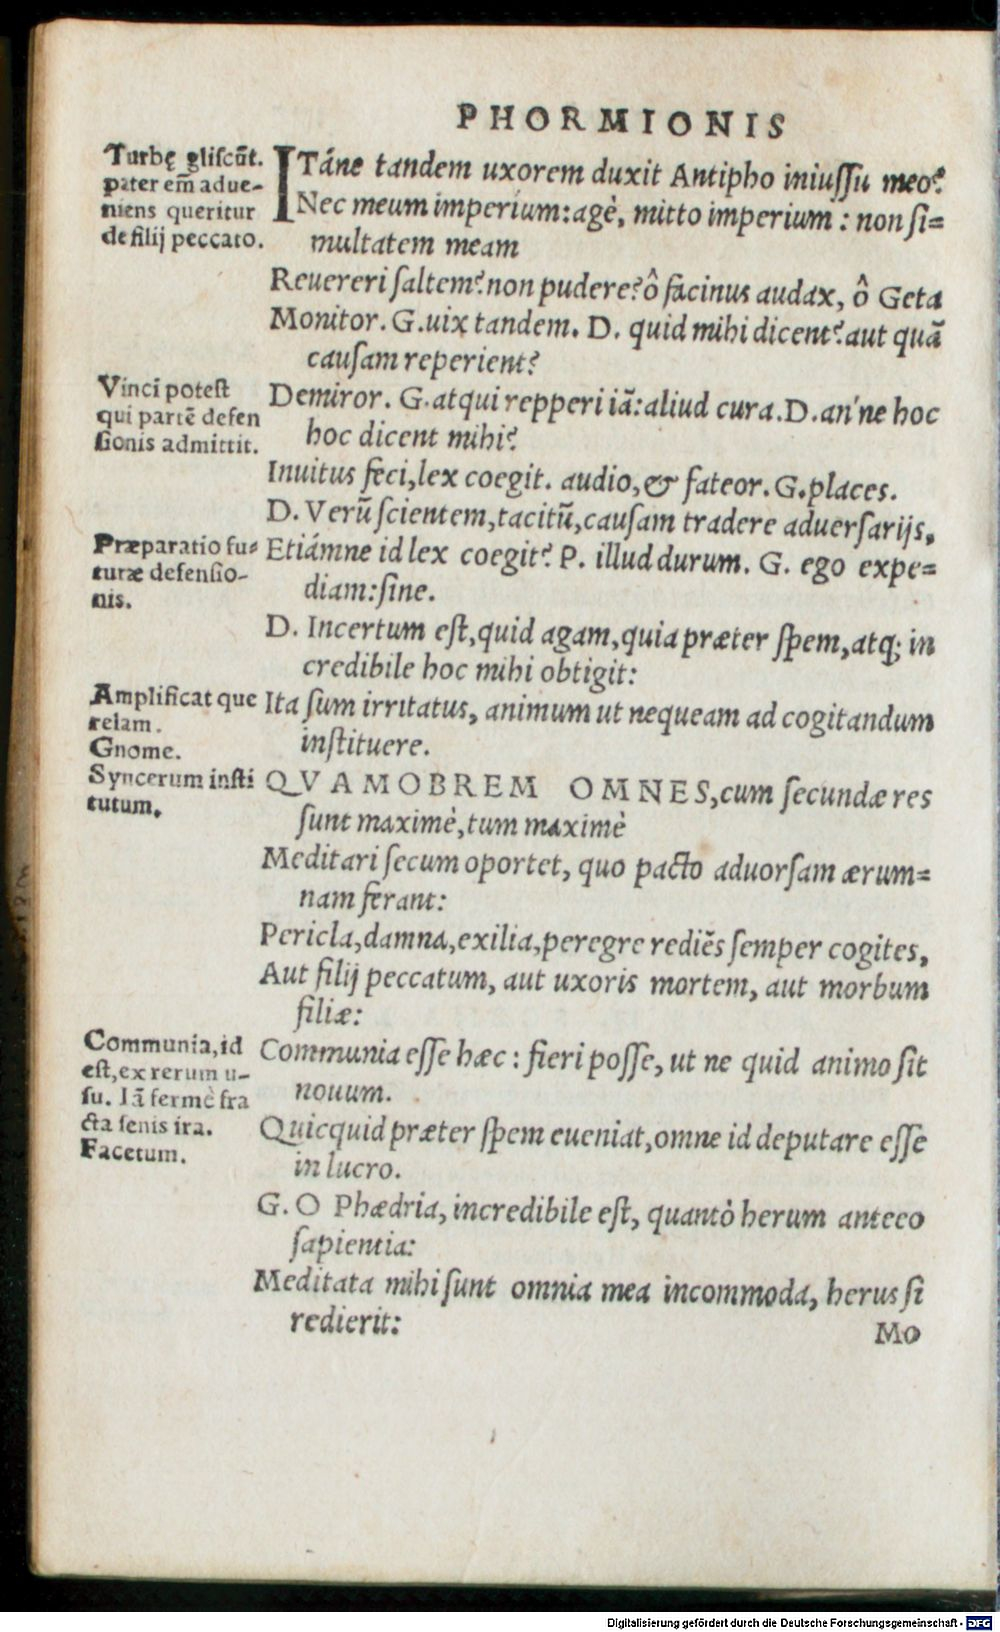 PHORMIONIS
Turbę gliscũt.
pater em̃ adue-
niens queritur
de filij peccato.
ITáne tandem uxorem duxit Antipho iniussu meo?
Nec meum imperium: agè, mitto imperium: non si=
multatem meam
Reuereri saltem? non pudere? ô facinus audax, ô Geta
Monitor. G. uix tandem. D. quid mihi dicent? aut quã
causam reperient?
Vinci potest
qui partẽ defen
sionis admittit.
Demiror. G. atqui repperi iã: aliud cura. D. an'ne hoc
hoc dicent mihi?
Inuitus feci, lex coegit. audio, & fateor. G. places.
D. Verũ scientem, tacitũ, causam tradere aduersarijs,
Præparatio fu=
turæ defensio-
nis.
Etiámne id lex coegit? P. illud durum. G. ego expe=
diam: sine.
D. Incertum est, quid agam, quia præter spem, atq; in
credibile hoc mihi obtigit:
Amplificat que
relam.
Gnome.
Syncerum insti
tutum.
Ita sum irritatus, animum ut nequeam ad cogitandum
instituere.
QVAMOBREM OMNES, cum secundæ res
sunt maximè, tum maximè
Meditari secum oportet, quo pacto aduorsam ærum=
nam ferant:
Pericla, damna, exilia, peregre rediẽs semper cogites,
Aut filij peccatum, aut uxoris mortem, aut morbum
filiæ:
Communia, id
est, ex rerum u-
su. Iã fermè fra
cta senis ira.
Facetum.
Communia esse hæc: fieri posse, ut ne quid animo sit
nouum.
Quicquid præter spem eueniat, omne id deputare esse
in lucro.
G. O Phædria, incredibile est, quantò herum anteeo
sapientia:
Meditata mihi sunt omnia mea incommoda, herus si
redierit:
Mo
Digitalisierung gefördert durch die Deutsche Forschungsgemeinschaft - DFG